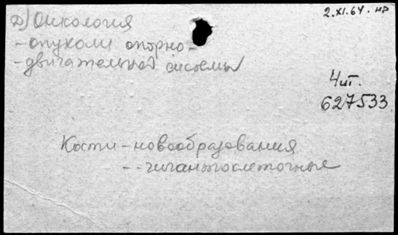 д) Онкология
2.XI.64. нр
- опухоли опорно-
- двигательной системы
4 шт.
627533
Кости - новообразования
- - гигантоклеточные